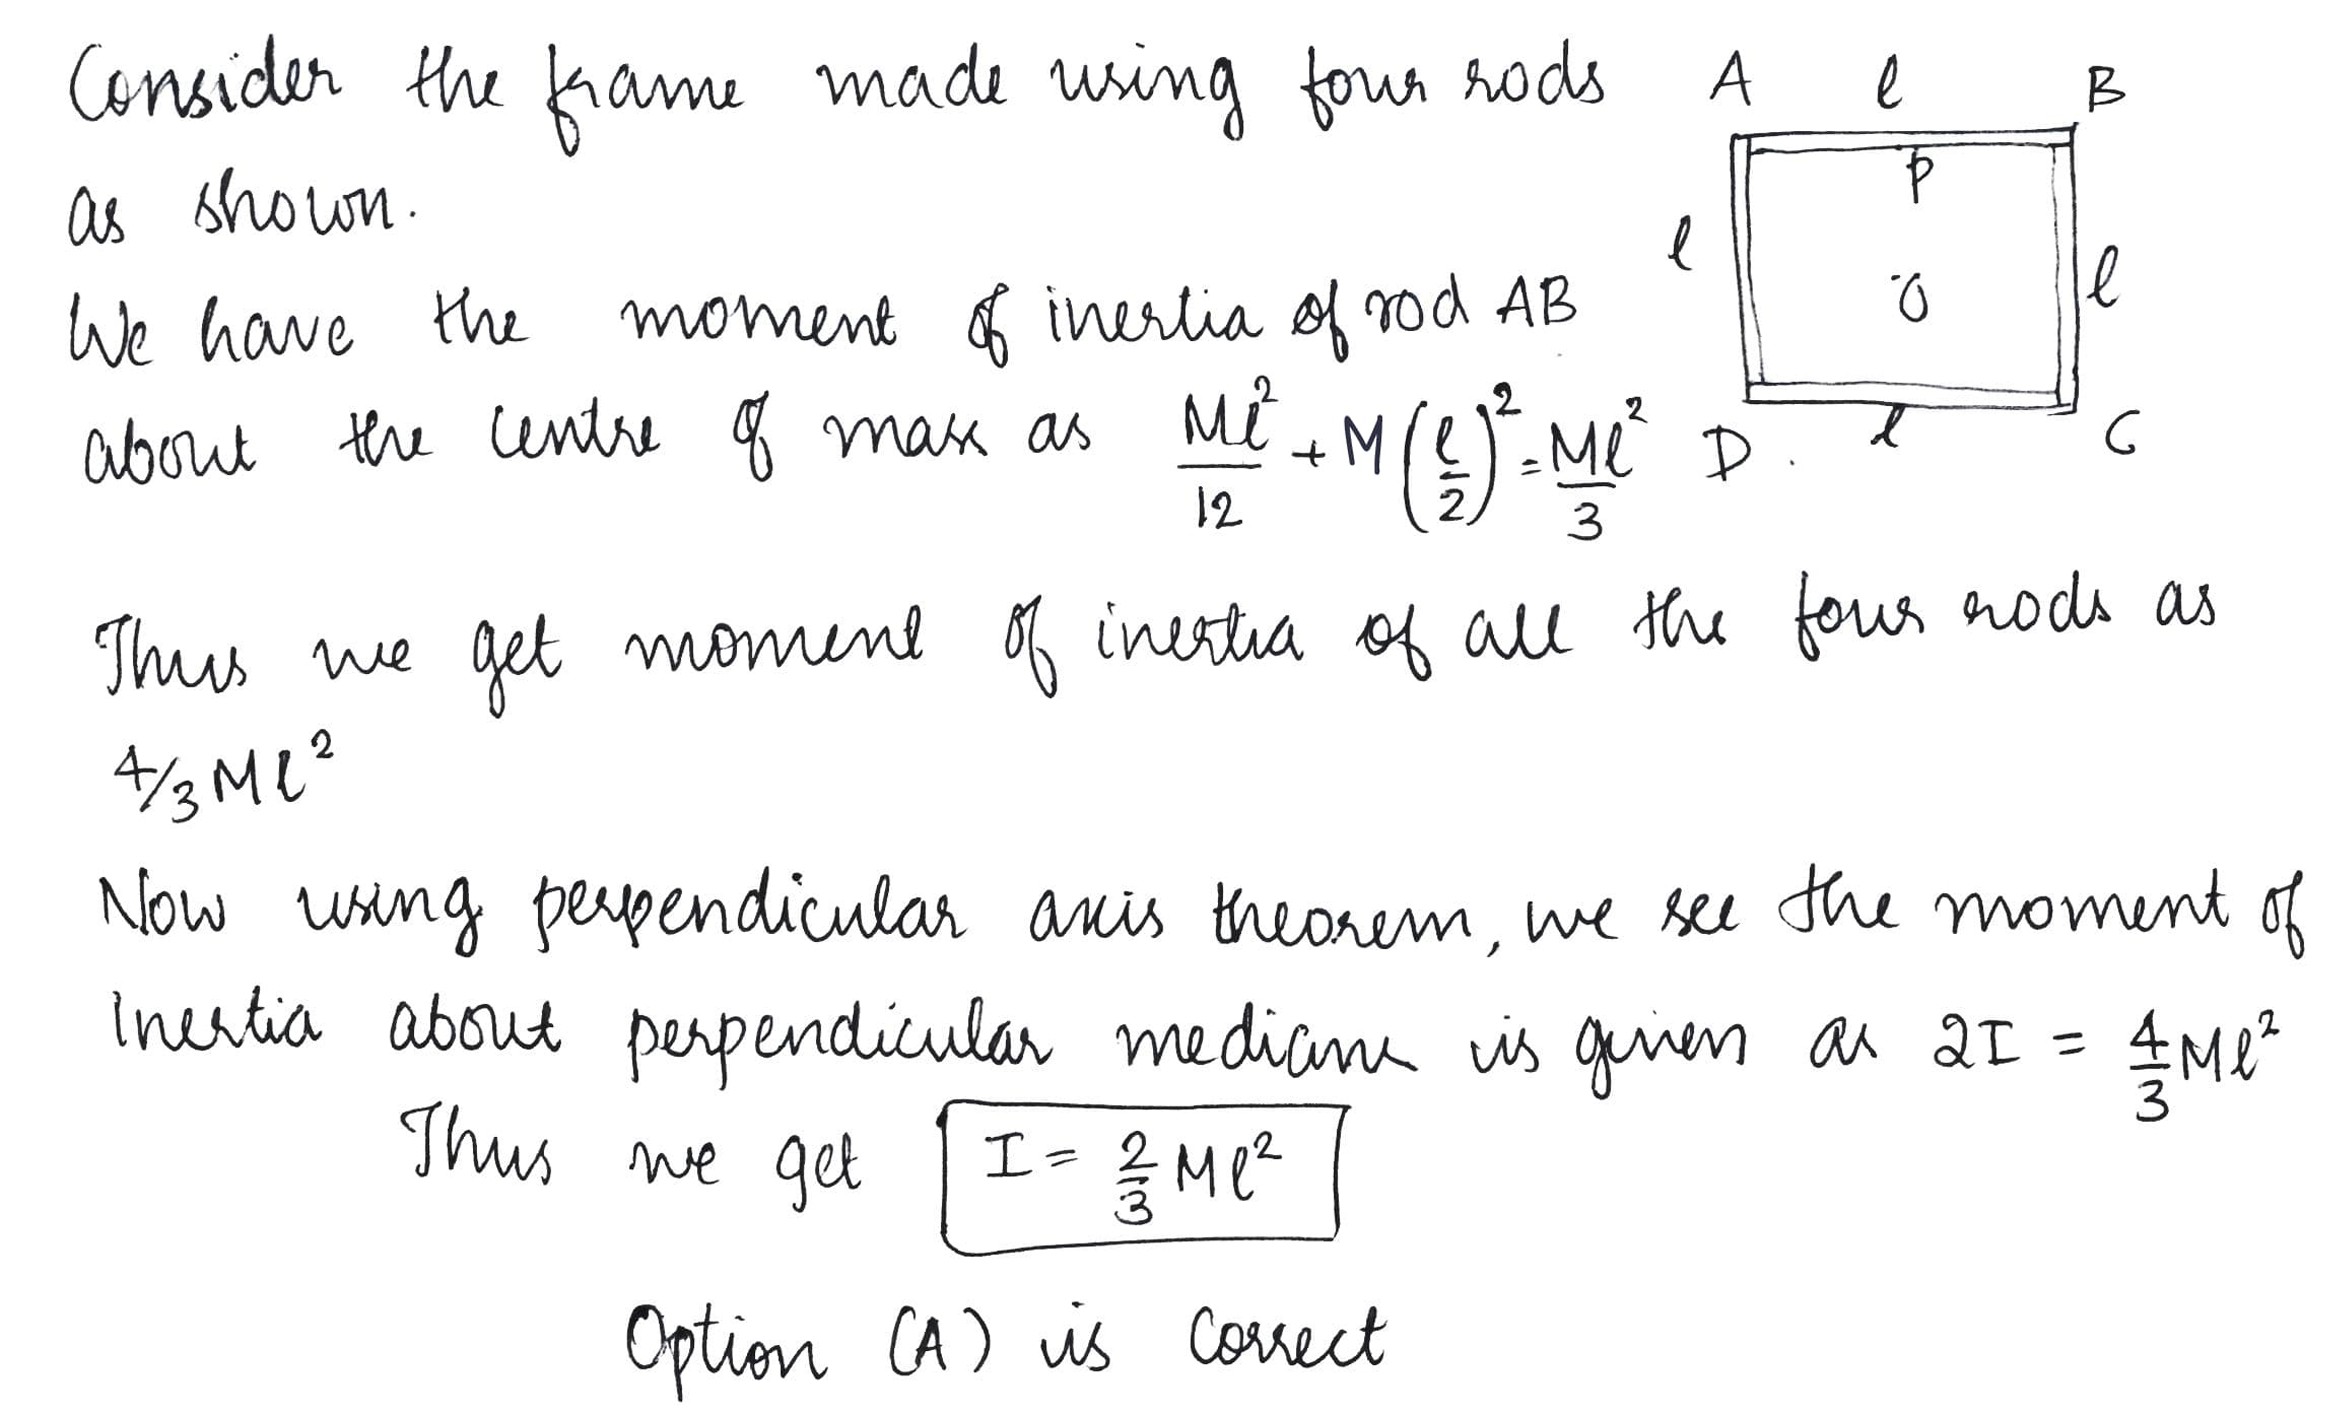 Consider the frame made using four rods
A l B
as shown.
P
l O l
We have the moment of inertia of rod AB
about the centre of mass as Ml²/12 + M(l/2)² = Ml²/3
D. l C
Thus we get moment of inertia of all the four rods as
4/3 Ml²
Now using perpendicular axis theorem, we see the moment of
Inertia about perpendicular medians is given as 2I = 4/3 Ml²
Thus we get I = 2/3 Ml²
Option (A) is correct